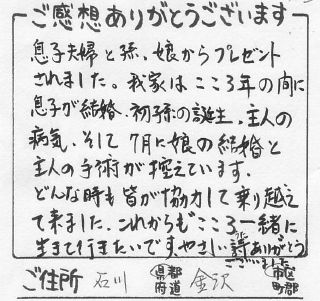 ご感想ありがとうございます
息子夫婦と孫、娘からプレゼント
されました。我家はここ3年の間に
息子が結婚、初孫の誕生、主人の
病気、そして7月に娘の結婚と
主人の手術が控えています。
どんな時も皆が協力して乗り越え
て来ました。これからもこころ一緒に
生きて行きたいです。やさしい詩ありがとう
ございました
ご住所 石川 都道府県 金沢 市区町郡